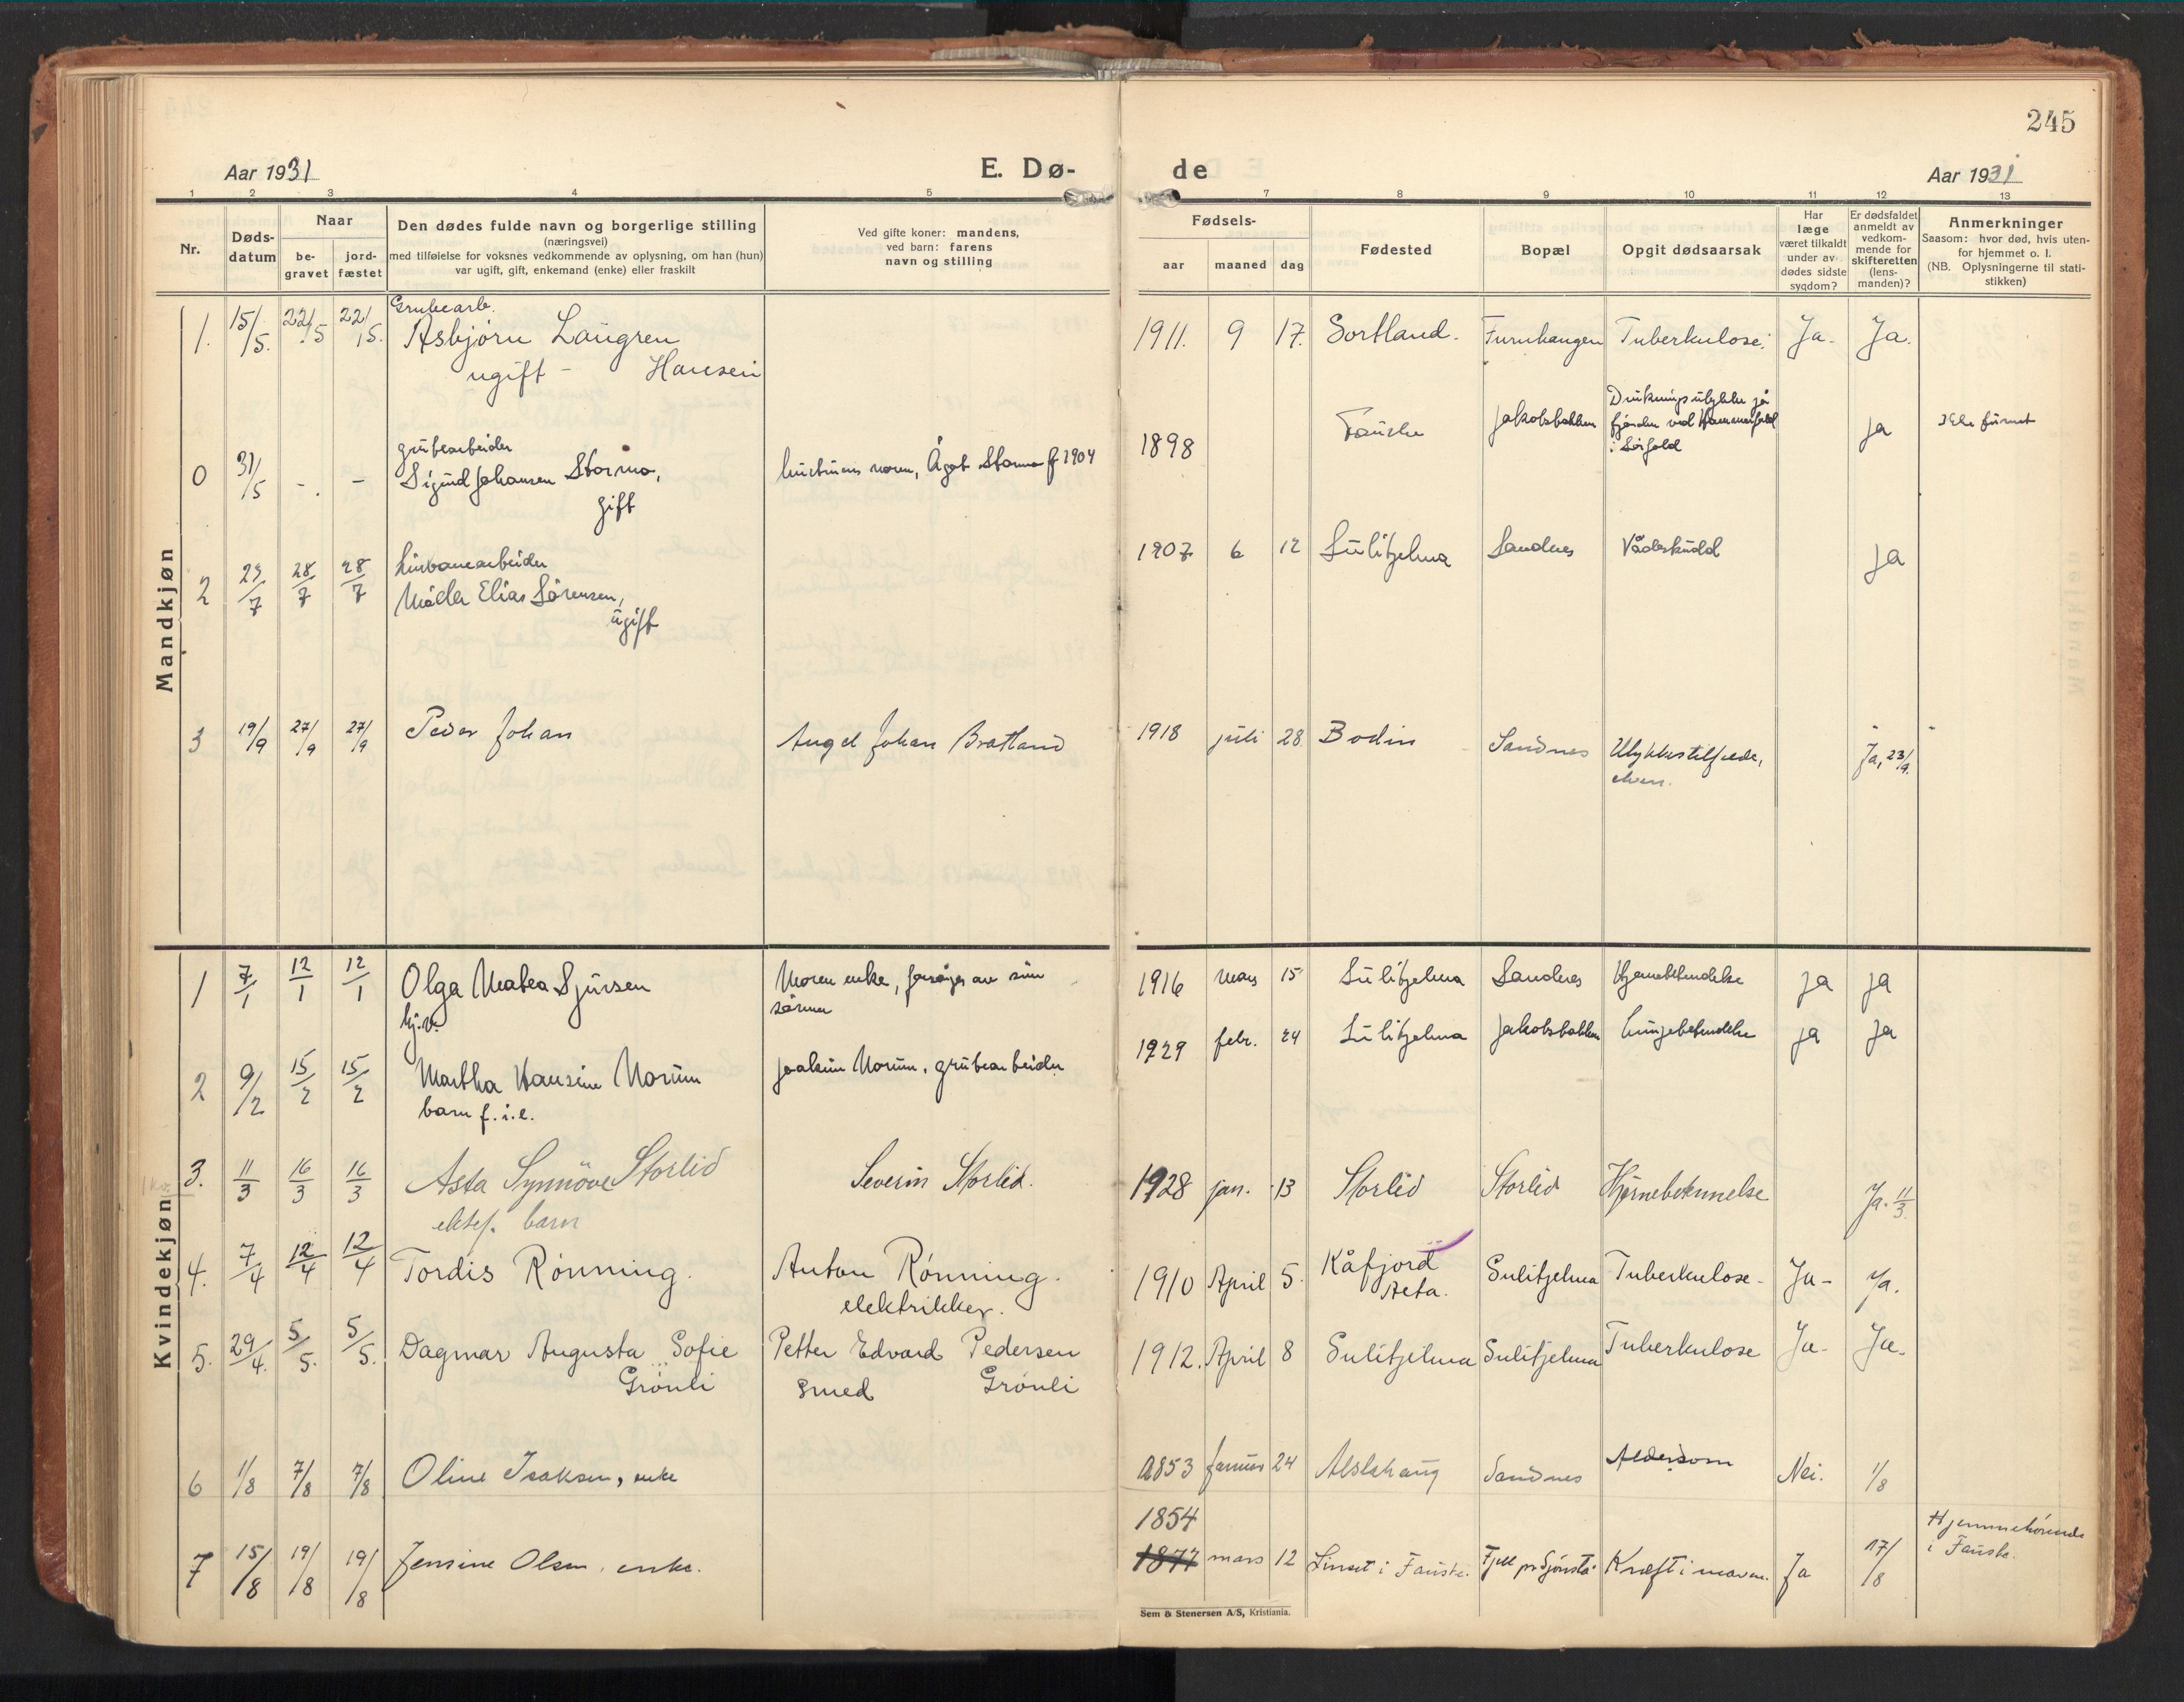 245
Aar 1931
E. Dø-
de
Aar 1931
1 2 3 4 5 7 8 9 10 11 12 13
Nr.
Døds-
datum
Naar
be-
gravet
jord-
fæstet
Den dødes fulde navn og borgerlige stilling
(næringsvei)
med tilføielse for voksnes vedkommende av oplysning, om han (hun)
var ugift, gift, enkemand (enke) eller fraskilt
Ved gifte koner: mandens,
ved barn: farens
navn og stilling
Fødsels-
aar maaned dag
Fødested
Bopæl
Opgit dødsaarsak
Har
læge
været tilkaldt
under av-
dødes sidste
sygdom?
Er dødsfaldet
anmeldt av
vedkom-
mende for
skifteretten
(lens-
manden)?
Anmerkninger
Saasom: hvor død, hvis uten-
for hjemmet o. l.
(NB. Oplysningerne til stati-
stikken)
Mandkjøn
Grubearb.
1. 15/5. 22/5 22/5. Asbjørn Laugren 1911. 9 17. Sortland. Furuhaugen Tuberkulose. Ja. Ja.
ugift - Hansen
grubearbeider
0 31/5 - - Sigurd Johansen Stormo, hustruens navn, Ågot Stormo f 1904 1898 Fauske Jakobsbakken Drukningsulykke på
fjorden ved Hammerfald
i Sørfold
ja Ikke funnet
gift
Linbanearbeider
2 23/7 28/7 28/7 Elias Sörensen, 1907 6 12 Sulitjelma Sandnes Vådeskudd ja
ugift
3 19/9 27/9 27/9 Peder Johan Angel Johan Bratland 1918 juli 28 Bodin Sandnes Ulykkestilfelde, Ja, 23/9.
Kvindekjøn
1 7/1 12/1 12/1 Olga Matea Sjursen Moren enke, forsørges av sin
sönner
1916 mars 15 Sulitjelma Sandnes Hjernebetendelse ja ja
2 9/2 15/2 15/2 Martha Hansine Norum Joakim Norum, grubearbeider 1929 febr. 24 Sulitjelma Jakobsbakken Lungebetendelse ja ja
barn f. i. e.
3. 11/3 16/3 16/3 Asta Synnöve Storlid Severin Storlid. 1928 jan. 13 Storlid Storlid Hjernebetennelse Ja. 11/3
ektef. barn
4. 7/4 12/4 12/4 Tordis Rønning. Anton Rønning. 1910 April 5. Kåfjord Sulitjelma Tuberkulose- Ja- Ja.
elektriker.
5. 29/4. 5/5. 5/5. Dagmar Augusta Sofie Petter Edvard Pedersen 1912. April 8 Sulitjelma Sulitjelma Tuberkulose Ja- Ja.
Grönli smed Grönli
6 1/8 7/8 7/8 Oline Isaksen, enke 1853 januar 24 Alstahaug Sandnes Alderdom Nei. 1/8
1854
7 15/8 19/8 19/8 Jensine Olsen, enke. 1877 mars 12 Finset i Fauske. Fjell pr Sjønstå Kreft i maven. Ja 17/8 Hjemmehörende
i Fauske.
Sem & Stenersen A/S, Kristiania.